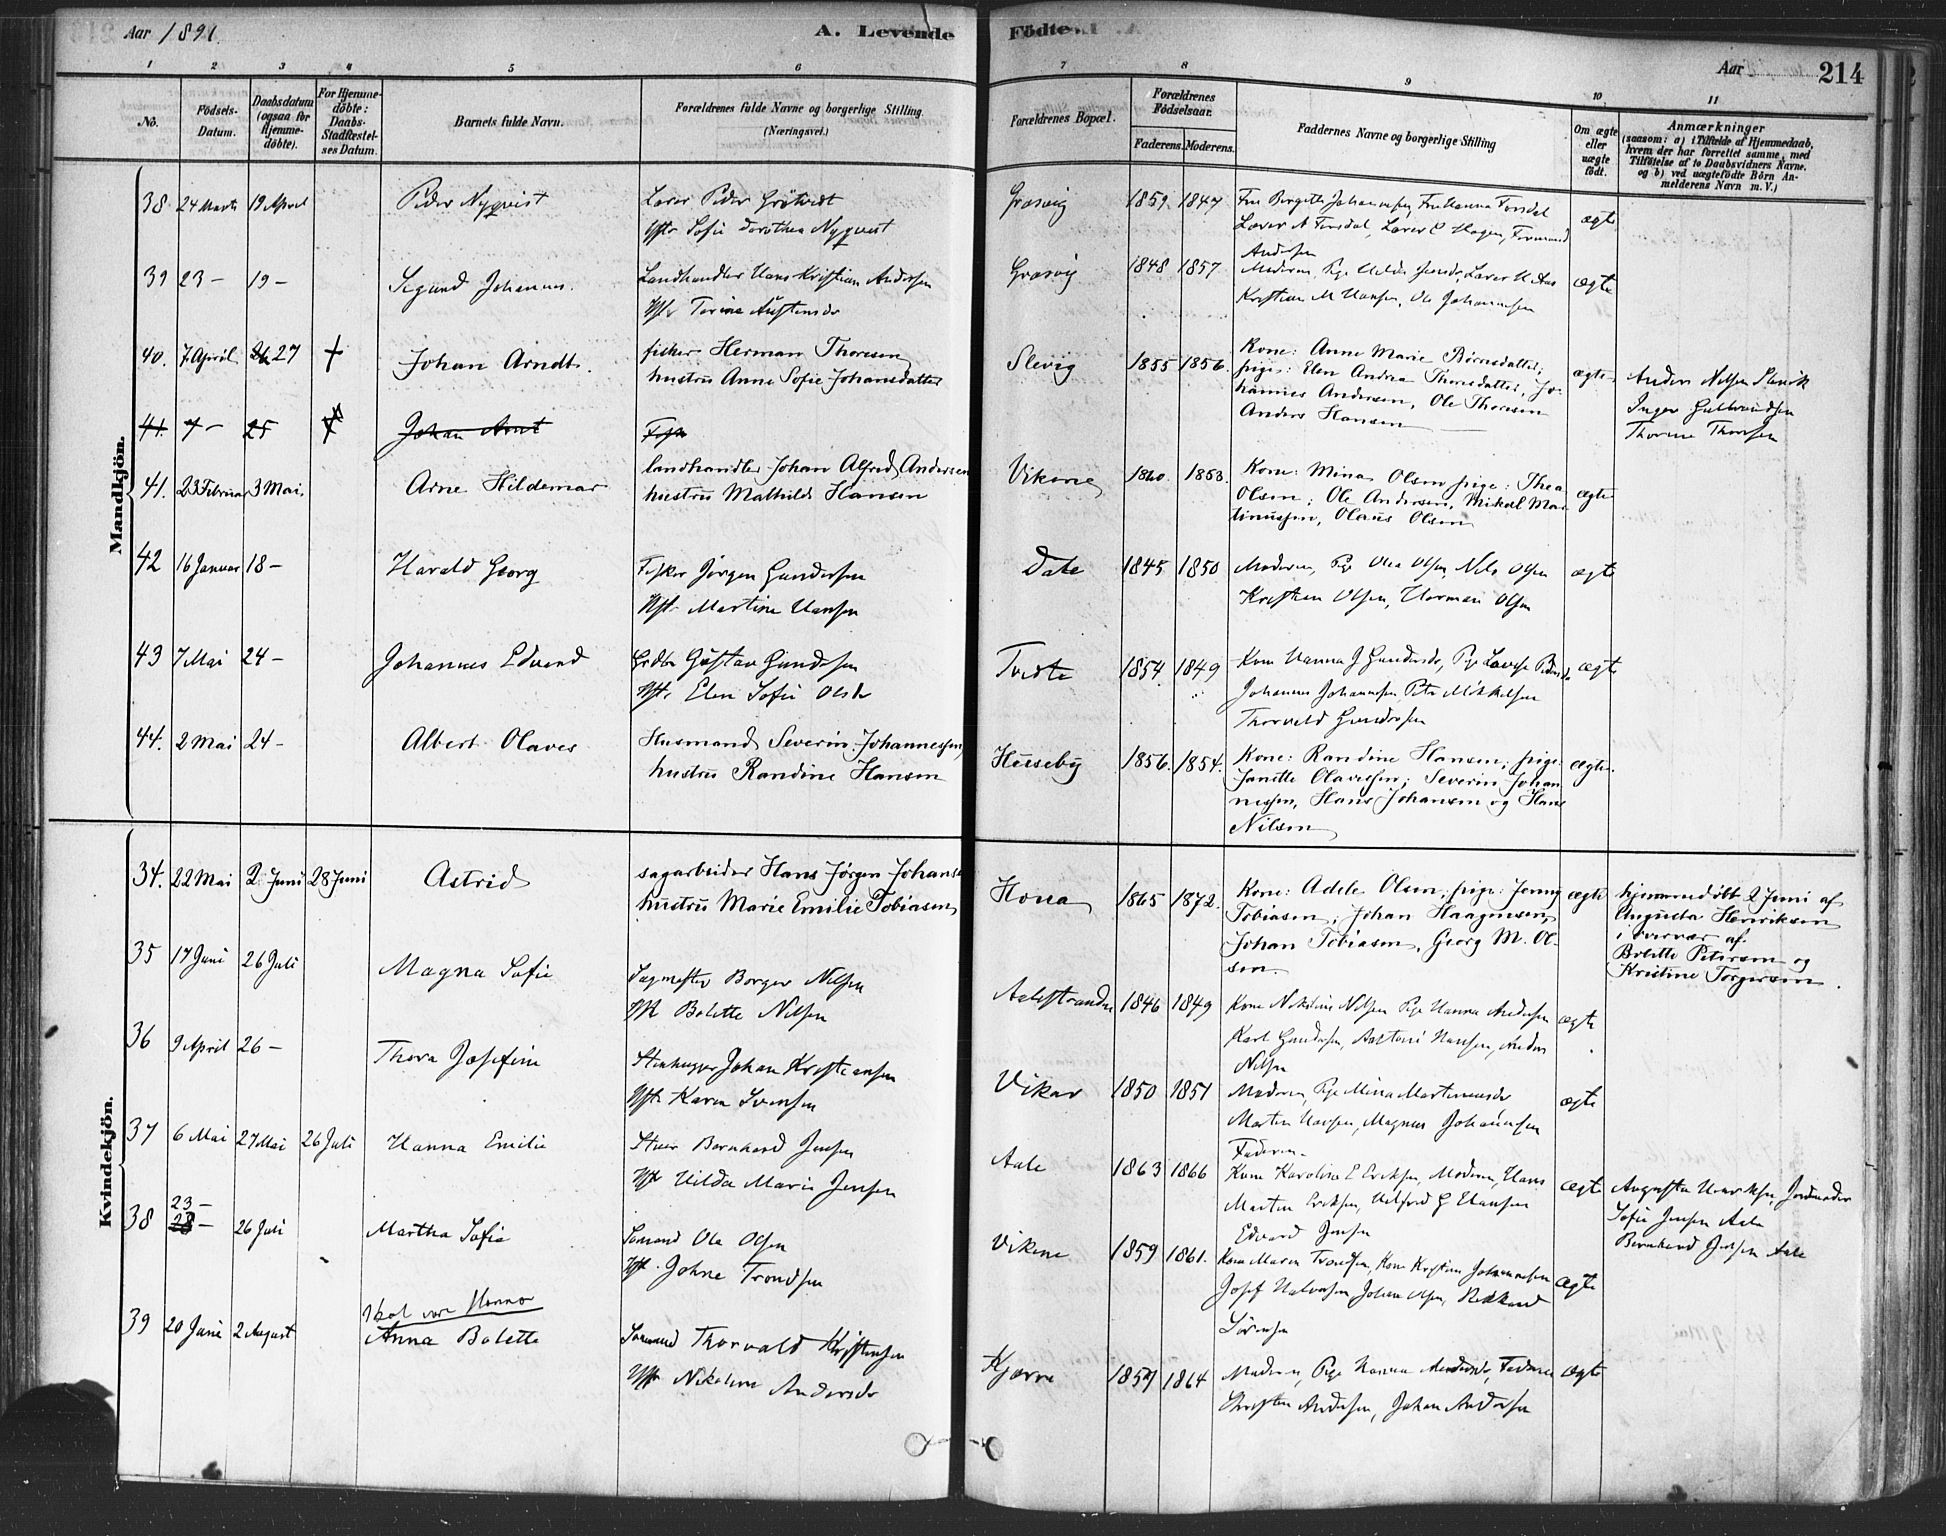 Aar 1891.
A. Levende Födte.
Aar 214
1 2 3 4 5 6 7 8 9 10 11
No.
Födsels-Datum.
Daabsdatum (ogsaa for Hjemme-döbte).
For Hjemme-döbte: Daabs-Stadfæstel-ses Datum.
Barnets fulde Navn.
Forældrenes fulde Navne og borgerlige Stilling. (Næringsvei.)
Forældrenes Bopæl.
Forældrenes Födselsaar.
Faderens. Moderens.
Faddernes Navne og borgerlige Stilling
Om ægte eller uægte födt.
Anmærkninger
(saasom: a) i Tilfælde af Hjemmedaab, hvem der har forrettet samme, med Tilföielse af to Daabsvidners Navne. og b) ved uægtefödte Börn An-melderens Navn m. V.)
Mandkjön.
38. 24 Marts 19 April Peder Nyqvist
Lærer Peder Grötvedt
Hstr Sofie Dorothea Nyqvist
Græsvig 1859. 1847
Fru Birgitte Johannessen, Fru Hanna Torsdal
Lærer N Torsdal, Lærer C Hagen, Formand
Andersen
ægte
39 23 - 19 - Sigurd Johannes.
Landhandler Hans Kristian Andersen
Hstr Torine Austensdr
Græsvig 1848 1857
Moderen, Pge Hilda Jensdr, Lærer H Aas
Kristian M Hansen, Ole Johannessen
ægte
40. 7 April 27 + Johan Arndt.
fisker Herman Thoresen
hustru Anne Sofie Johansdatter
Slevig 1855 1856.
Kone: Anne Marie Börnsdatter;
pige: Elen Andrea Thorsdatter, Jo-
hannes Andersen, Ole Thoresen
Anders Hansen
ægte
Anders Nilsen Slevik
Inger Gulbrandsen
Thorine Thoresen
41. 7 - 25 Johan Arnt
Fisk
41. 23 Februar 3 Mai. Arne Hildemar
landhandler Johan Alfred Andersen
hustru Mathilde Hansen
Vikene 1860. 1853.
Kone: Mina Olsen pige: Thea
Olsen; Ole Andersen, Mikael Mar-
tinussen, Olaus Olsen
ægte
42 16 Januar 18 - Harald Georg
Fisker Jørgen Gundersen
Hstr Martine Hansen
Dale 1845 1850
Moderen, Pge Olea Olsen, Nils Olsen
Kristian Olsen, Herman Olsen
ægte
43 7 Mai 24 - Johannes Edvard
Grdbr Gustav Gundersen
Hstr. Elen Sofie Olsdr
Tvedte 1854. 1849
Kone Hanna J Gundersdr, Pge Lovise Pedersdr
Johannes Johannessen Peter Mikkelsen
Thorvald Gundersen
ægte
44. 2 Mai 24 - Albert Olaves
Husmand Severin Johannessen,
hustru Randine Hansen
Huseby 1856. 1854.
Kone: Randine Hansen; pige:
Janette Olavessen; Severin Johan
nessen, Hans Johansen og Hans
Nilsen
ægte.
Kvindekjön.
34. 22 Mai 2 Juni 28 Juni Astrid
sagarbeider Hans Jørgen Johans
hustru Marie Emilie Tobiasen
Hona 1865 1872.
Kone: Adele Olsen; pige: Jenny
Tobiasen; Johan Haagensen,
Johan Tobiasen, Georg M. Ol-
sen.
ægte
hjemmedöbt 2 Juni af
Augusta Henriksen
i overvær af
Bolette Petersen og
Kristine Torgersen.
35 17 Juni 26 Juli Magna Sofie
Sagmester Borger Nilsen
Hst Bolette Nilsen
Aalestranden 1846 1849
Kone Nikoline Nilsen Pge Hanna Andersen
Karl Gundersen, Antoni Hansen, Anders
Nilsen
ægte
36 9 April 26 - Thora Josefine
Stenhugger Johan Kristiansen
Hstr Karen Svensen
Vikar 1850 1851
Moderen, Pge Mina Martinusdr
Martin Hansen, Magnus Johannsen
Faderen.
ægte
37 6 Mai 27 Mai 26 Juli Hanna Emilie
Stuer Bernhard Jensen
Hst Hilda Marie Jensen
Aale 1863 1866
Kone Karoline E Eriksen, Moderen, Hans
Martin Eriksen, Vilford G Hansen
Edvard Jensen
ægte
Augusta Henriksen, Jordmoder
Sofie Jensen Aale
Bernhard Jensen Aale
38 23 - 28 - 26 Juli Martha Sofie
Sømand Ole Olsen
Hst. Johne Trondsen
Vikene 1859 1861.
Kone Maren Trondsen, Kone Kristine Johannesen
Josef Halvorsen Johan Olsen, Rikhard
Sörensen
ægte
Skal være Hanna
39 20 Juni 2 August Anna Bolette
Sømand Thorvald Kristensen
Hst Nikoline Andersdr
Kjærre 1857 1864
Moderen, Pge Hanna Andersdr, Faderen
Kristen Andersen, Johan Andersen
ægte